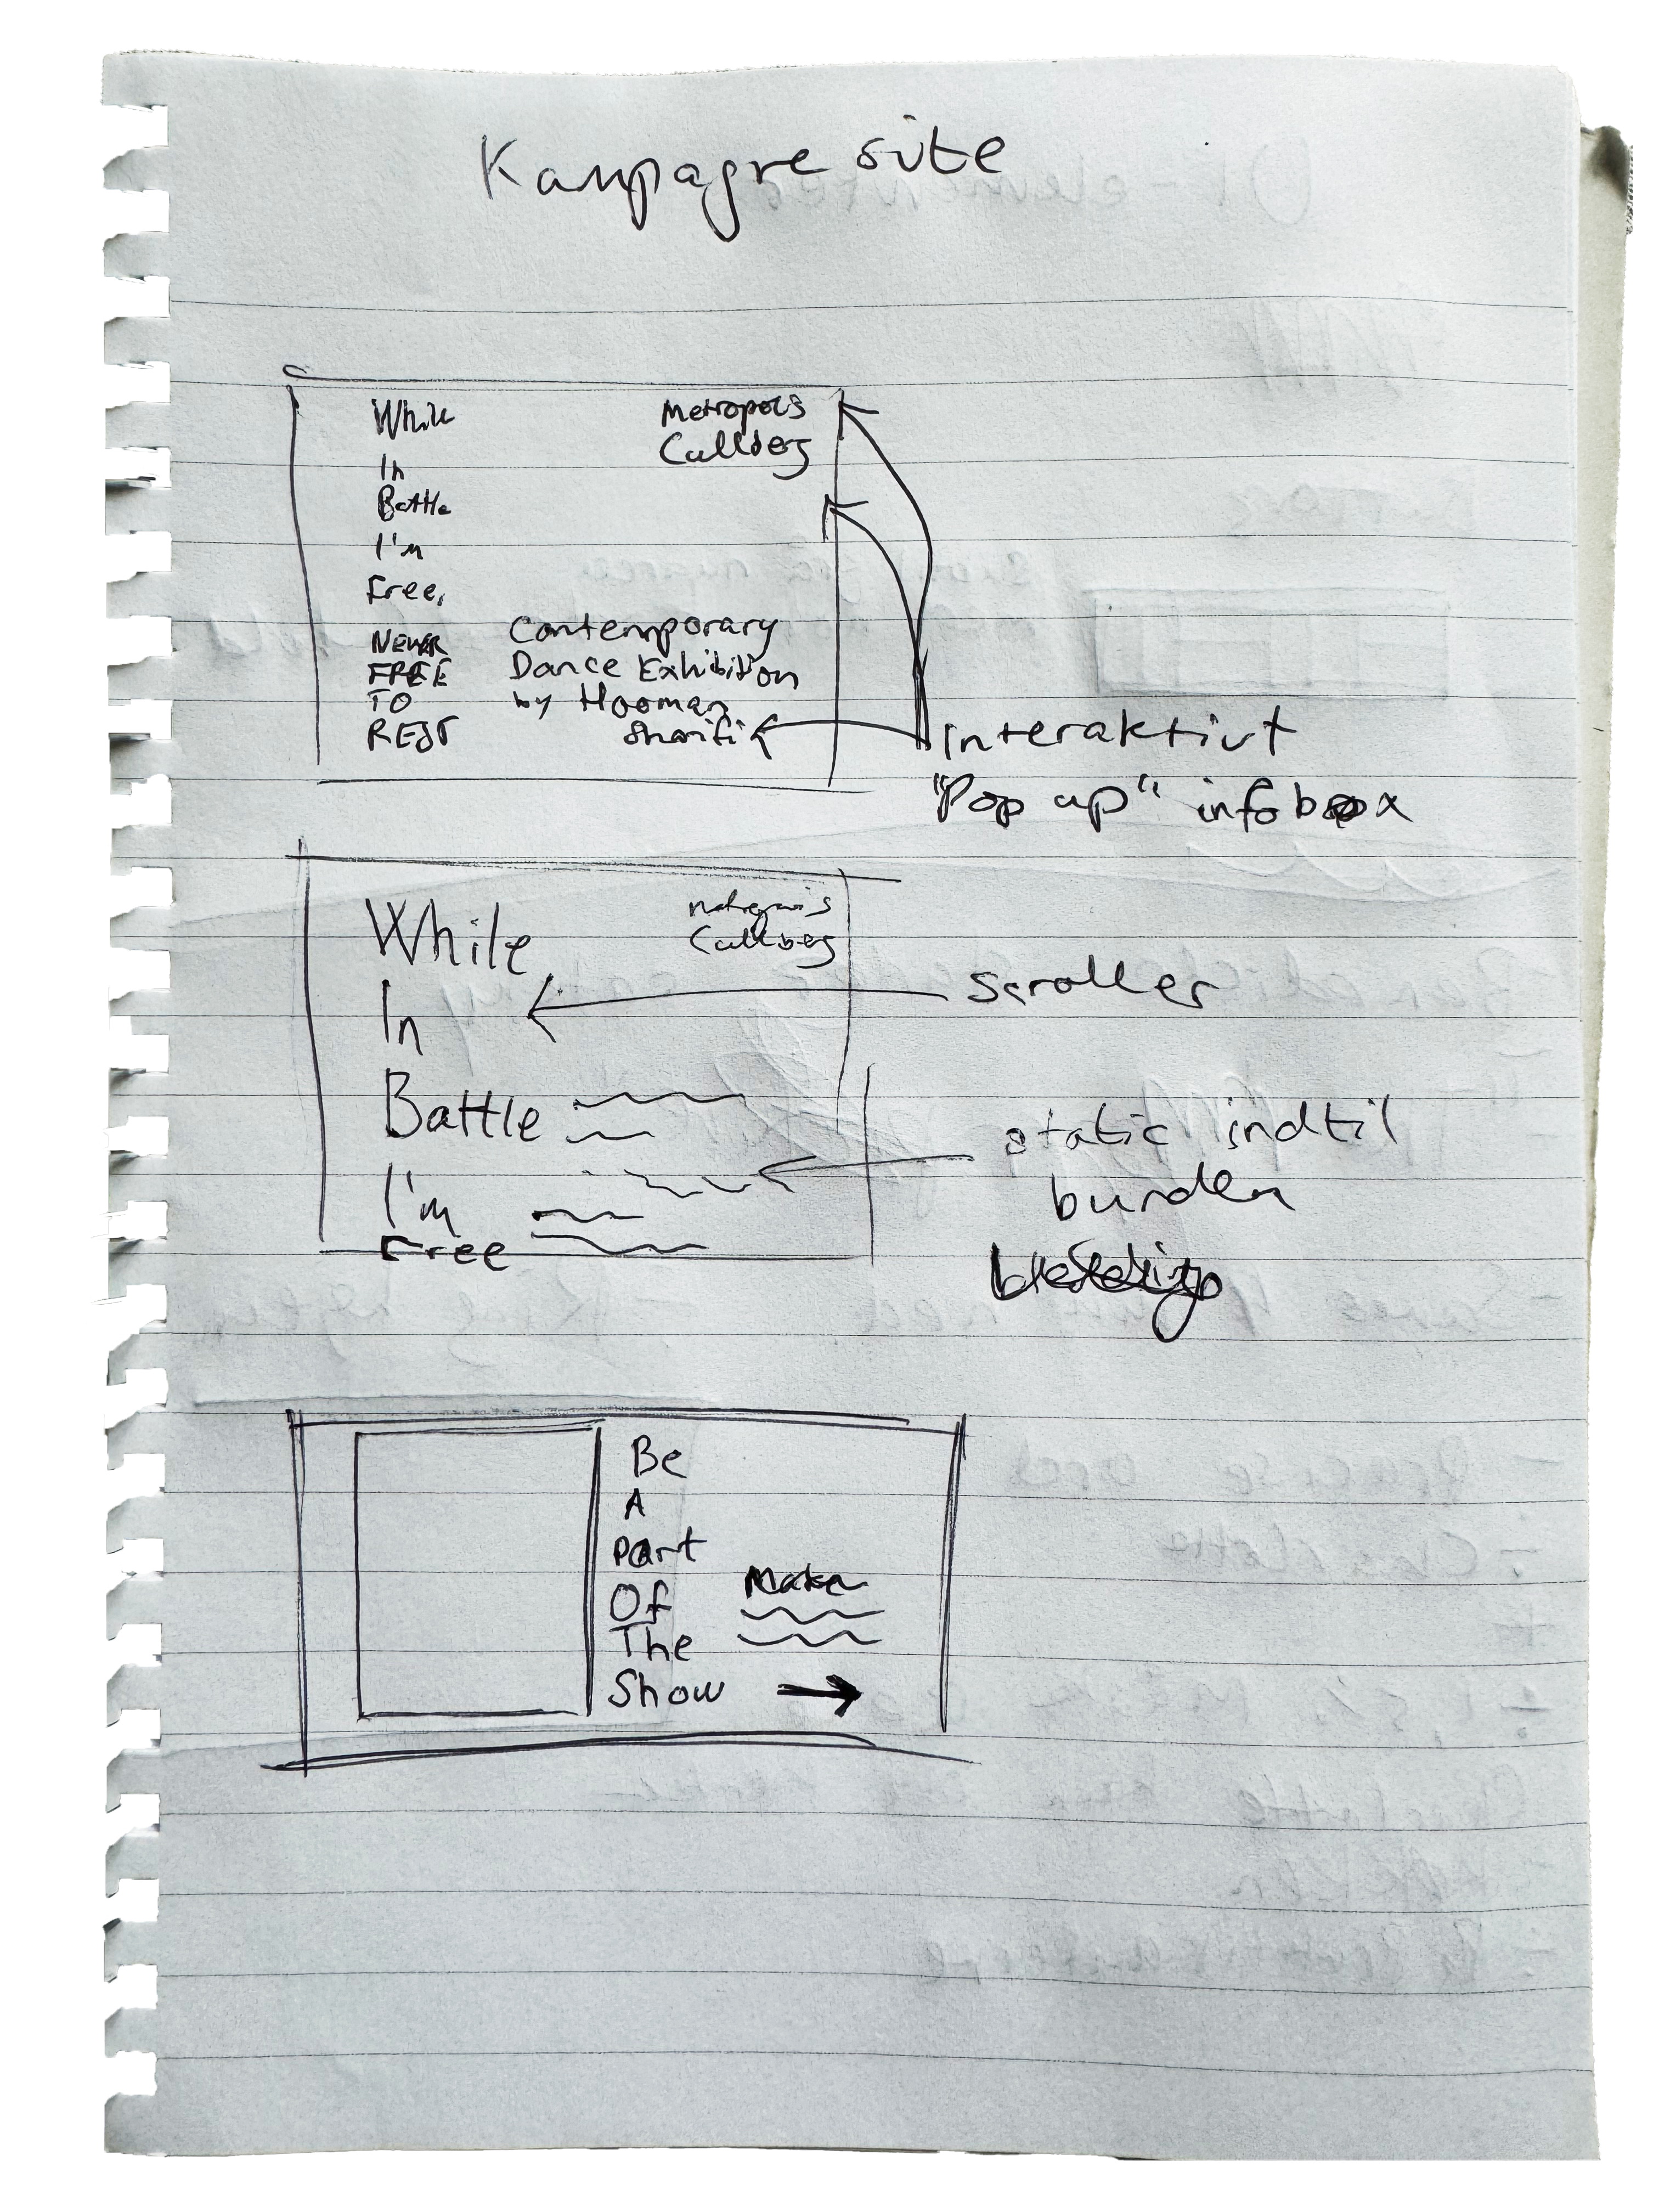 Kampagne site
While
In
Battle
I'm
Free,
NEVER
FREE
TO
REST
Metropolis
Cullberg
Contemporary
Dance Exhibition
by Hooman
Sharifi
Interaktivt
"Pop up" infobox
While
In
Battle
I'm
Free
Cullberg
Scroller
static indtil
Be
A
Part
Of
The
Show
Make